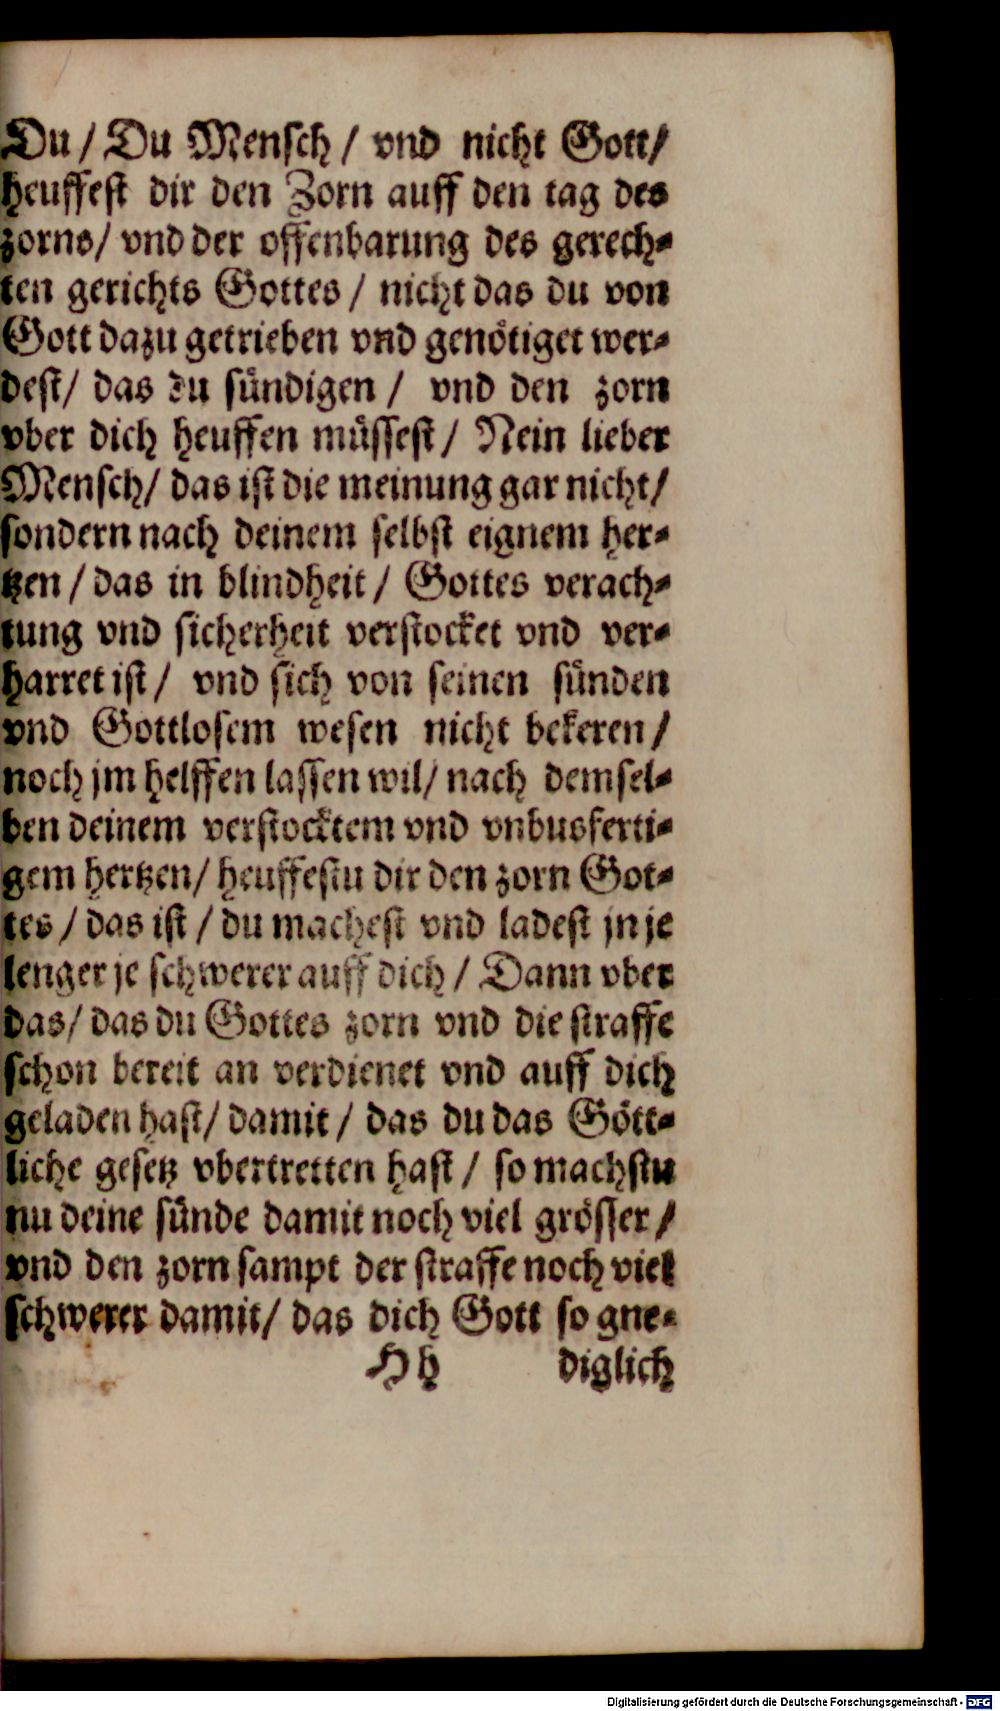 Du / Du Mensch / vnd nicht Gott /
heuffest dir den Zorn auff den tag des
zorns / vnd der offenbarung des gerech-
ten gerichts Gottes / nicht das du von
Gott dazu getrieben vnd genötiget wer-
dest / das du sündigen / vnd den zorn
vber dich heuffen müssest / Nein lieber
Mensch / das ist die meinung gar nicht /
sondern nach deinem selbst eignem her-
tzen / das in blindheit / Gottes verach-
tung vnd sicherheit verstocket vnd ver-
harret ist / vnd sich von seinen sünden
vnd Gottlosem wesen nicht bekeren /
noch jm helffen lassen wil / nach demsel-
ben deinem verstocktem vnd vnbusferti-
gem hertzen / heuffestu dir den zorn Got-
tes / das ist / du machest vnd ladest jn je
lenger je schwerer auff dich / Dann vber
das / das du Gottes zorn vnd die straffe
schon bereit an verdienet vnd auff dich
geladen hast / damit / das du das Gött-
liche gesetz vbertretten hast / so machstu
nu deine sünde damit noch viel grösser /
vnd den zorn sampt der straffe noch viel
schwerer damit / das dich Gott so gne-
Hh diglich
Digitalisierung gefördert durch die Deutsche Forschungsgemeinschaft - DFG